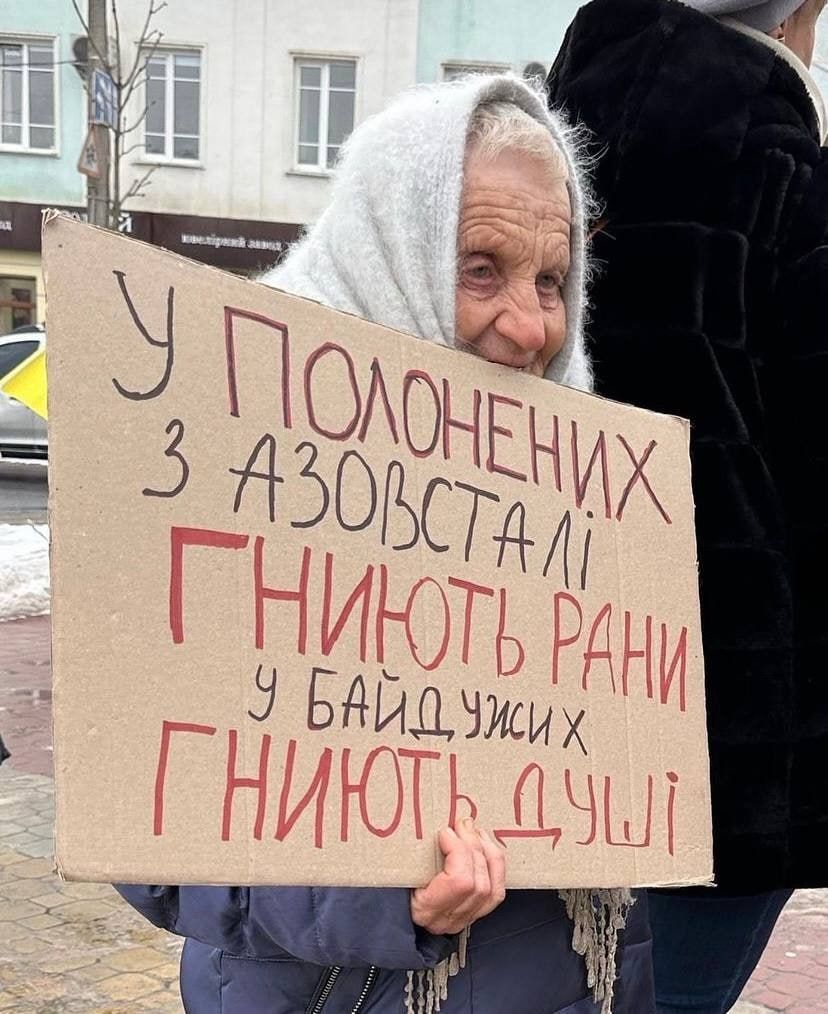 ювелірний завод
У ПОЛОНЕНИХ
З АЗОВСТАЛІ
ГНИЮТЬ РАНИ
У БАЙДУЖИХ
ГНИЮТЬ ДУШІ